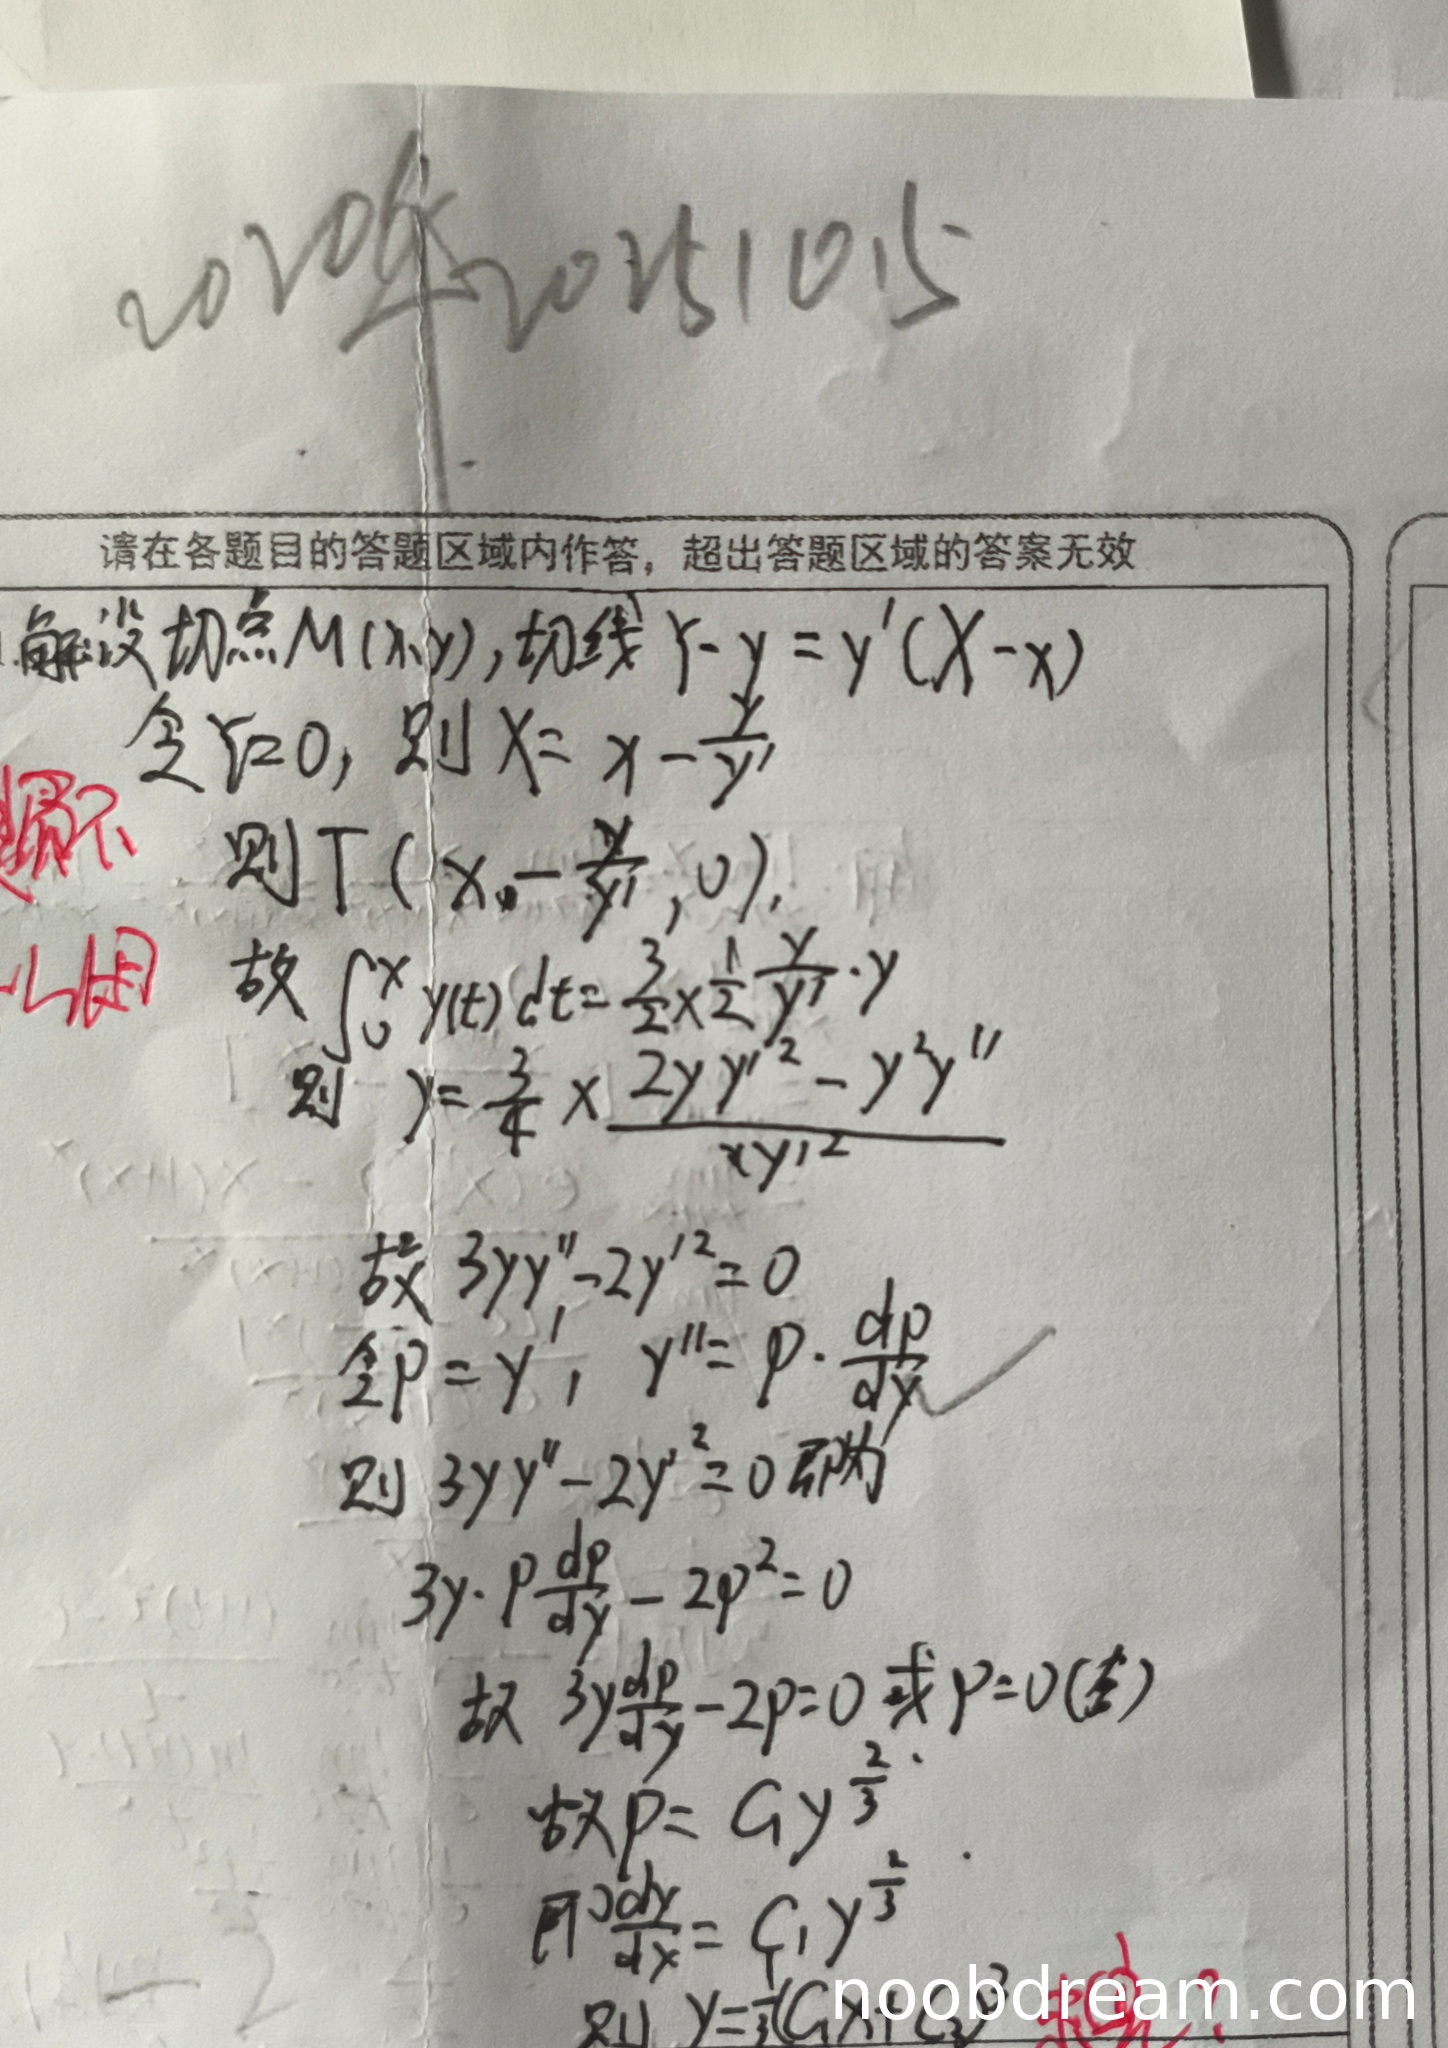 2020年 20251015
请在各题目的答题区域内作答，超出答题区域的答案无效
解设切点M(x,y),切线 Y-y=y'(X-x)
令Y=0, 则 X= x-\frac{y}{y'}
则 T ( x-\frac{y}{y'},0).
故 \int_0^x y(t) dt=\frac{3}{2}×\frac{1}{2}\frac{y}{y'}·y
则 y=\frac{3}{4}×\frac{2yy'^2-y^2y''}{y'^2}
故 3yy''-2y'^2=0
令p=y', y''=p·\frac{dp}{dy}
则 3yy''-2y'^2=0 即为
3y·p\frac{dp}{dy}-2p^2=0
故 3y\frac{dp}{dy}-2p=0 或 p=0(舍)
故p= C_1y^{\frac{2}{3}}
即\frac{dy}{dx}= C_1y^{\frac{2}{3}}
则 y=
noobdream.com